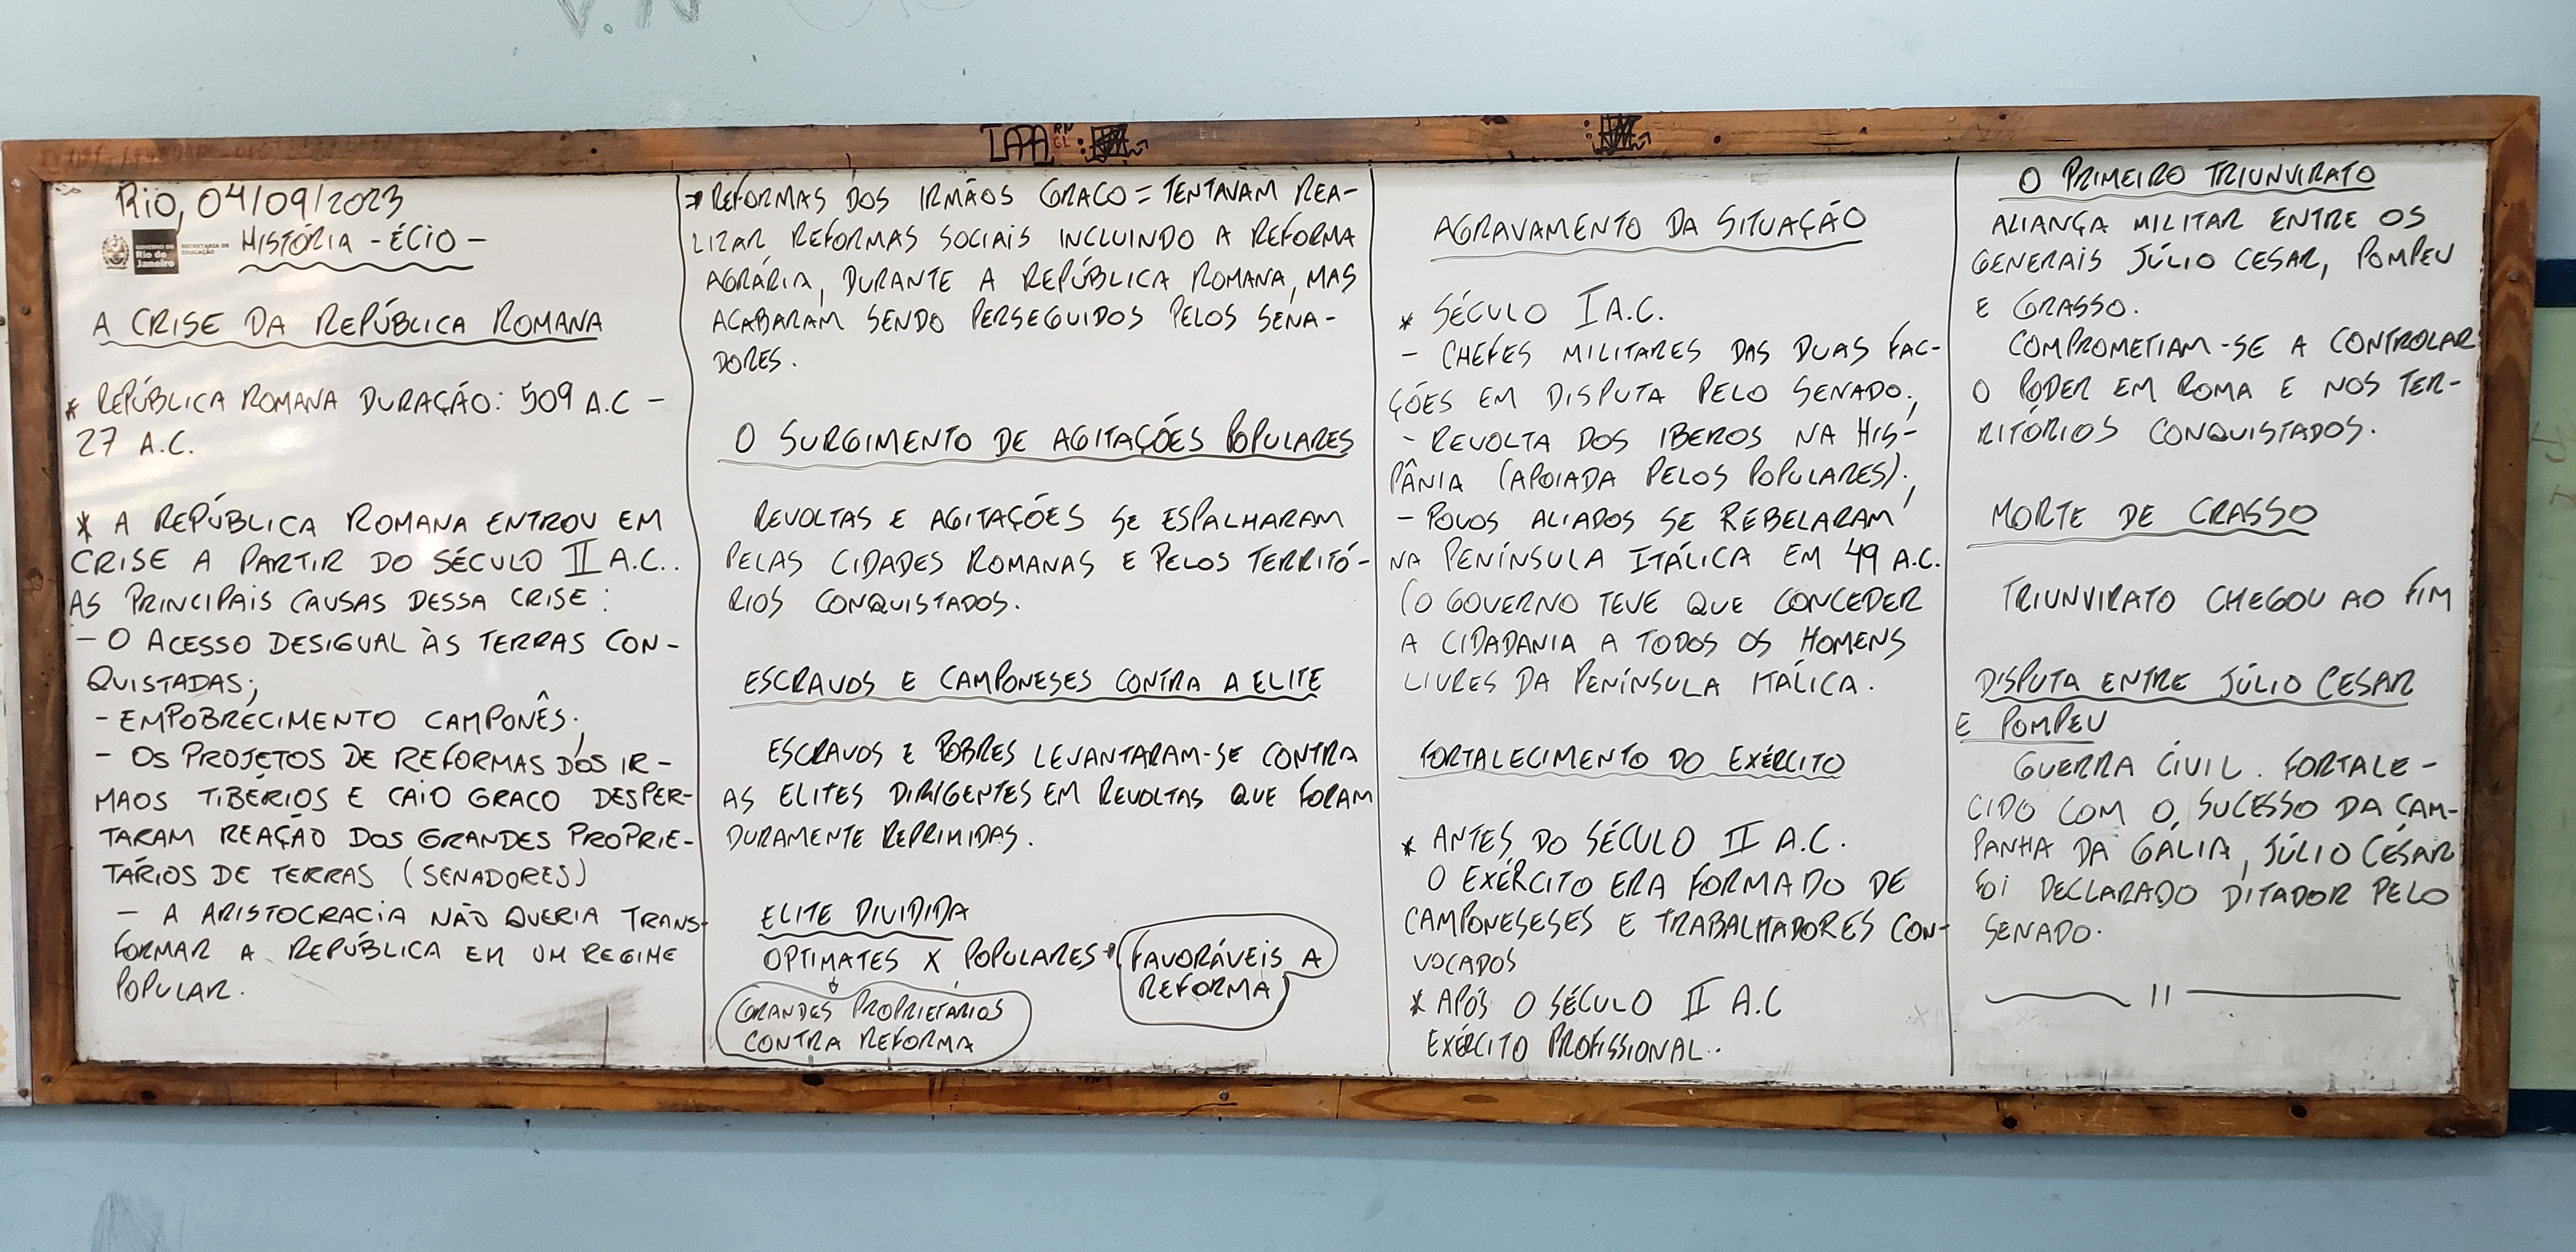 V.N
LAPA RN
CL
Rio, 04/09/2023
GOVERNO DO
Rio de
Janeiro
SECRETARIA DE
EDUCAÇÃO
HISTÓRIA - ÉCIO -
A CRISE DA REPÚBLICA ROMANA
* REPÚBLICA ROMANA DURAÇÃO: 509 A.C -
27 A.C.
* A REPÚBLICA ROMANA ENTROU EM
CRISE A PARTIR DO SÉCULO II A.C..
AS PRINCIPAIS CAUSAS DESSA CRISE:
- O ACESSO DESIGUAL ÀS TERRAS CON-
QUISTADAS;
- EMPOBRECIMENTO CAMPONÊS;
- OS PROJETOS DE REFORMAS DOS IR-
MAOS TIBÉRIOS E CAIO GRACO DESPER-
TARAM REAÇÃO DOS GRANDES PROPRIE-
TÁRIOS DE TERRAS (SENADORES)
- A ARISTOCRACIA NÃO QUERIA TRANS-
FORMAR A REPÚBLICA EM UM REGIME
POPULAR.
→ REFORMAS DOS IRMÃOS GRACO = TENTAVAM REA-
LIZAR REFORMAS SOCIAIS INCLUINDO A REFORMA
AGRÁRIA, DURANTE A REPÚBLICA ROMANA, MAS
ACABARAM SENDO PERSEGUIDOS PELOS SENA-
DORES.
O SURGIMENTO DE AGITAÇÕES POPULARES
REVOLTAS E AGITAÇÕES SE ESPALHARAM
PELAS CIDADES ROMANAS E PELOS TERRITÓ-
RIOS CONQUISTADOS.
ESCRAVOS E CAMPONESES CONTRA A ELITE
ESCRAVOS E POBRES LEVANTARAM-SE CONTRA
AS ELITES DIRIGENTES EM REVOLTAS QUE FORAM
DURAMENTE REPRIMIDAS.
ELITE DIVIDIDA
OPTIMATES X POPULARES → FAVORÁVEIS A
REFORMA
GRANDES PROPRIETÁRIOS
CONTRA REFORMA
AGRAVAMENTO DA SITUAÇÃO
* SÉCULO I A.C.
- CHEFES MILITARES DAS DUAS FAC-
ÇÕES EM DISPUTA PELO SENADO;
- REVOLTA DOS IBEROS NA HIS-
PÂNIA (APOIADA PELOS POPULARES);
- POVOS ALIADOS SE REBELARAM
NA PENÍNSULA ITÁLICA EM 49 A.C.
(O GOVERNO TEVE QUE CONCEDER
A CIDADANIA A TODOS OS HOMENS
LIVRES DA PENÍNSULA ITÁLICA.
FORTALECIMENTO DO EXÉRCITO
* ANTES DO SÉCULO II A.C.
O EXÉRCITO ERA FORMADO DE
CAMPONESESES E TRABALHADORES CON-
VOCADOS
* APÓS O SÉCULO II A.C
EXÉRCITO PROFISSIONAL..
O PRIMEIRO TRIUNVIRATO
ALIANÇA MILITAR ENTRE OS
GENERAIS JÚLIO CESAR, POMPEU
E GRASSO.
COMPROMETIAM-SE A CONTROLAR
O PODER EM ROMA E NOS TER-
RITÓRIOS CONQUISTADOS.
MORTE DE CRASSO
TRIUNVIRATO CHEGOU AO FIM
DISPUTA ENTRE JÚLIO CESAR
E POMPEU
GUERRA CIVIL. FORTALE-
CIDO COM O SUCESSO DA CAM-
PANHA DA GÁLIA, JÚLIO CÉSAR
FOI DECLARADO DITADOR PELO
SENADO.